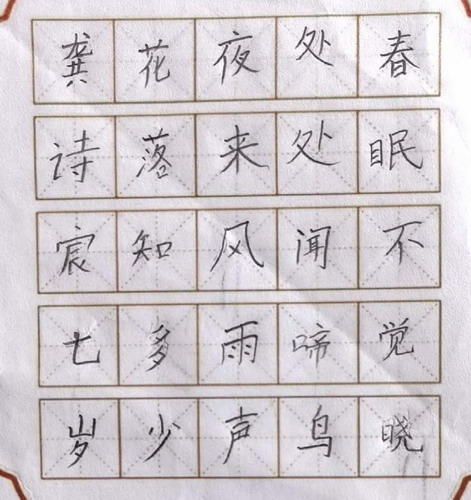 春眠不觉晓
处处闻啼鸟
夜来风雨声
花落知多少
龚诗宸七岁